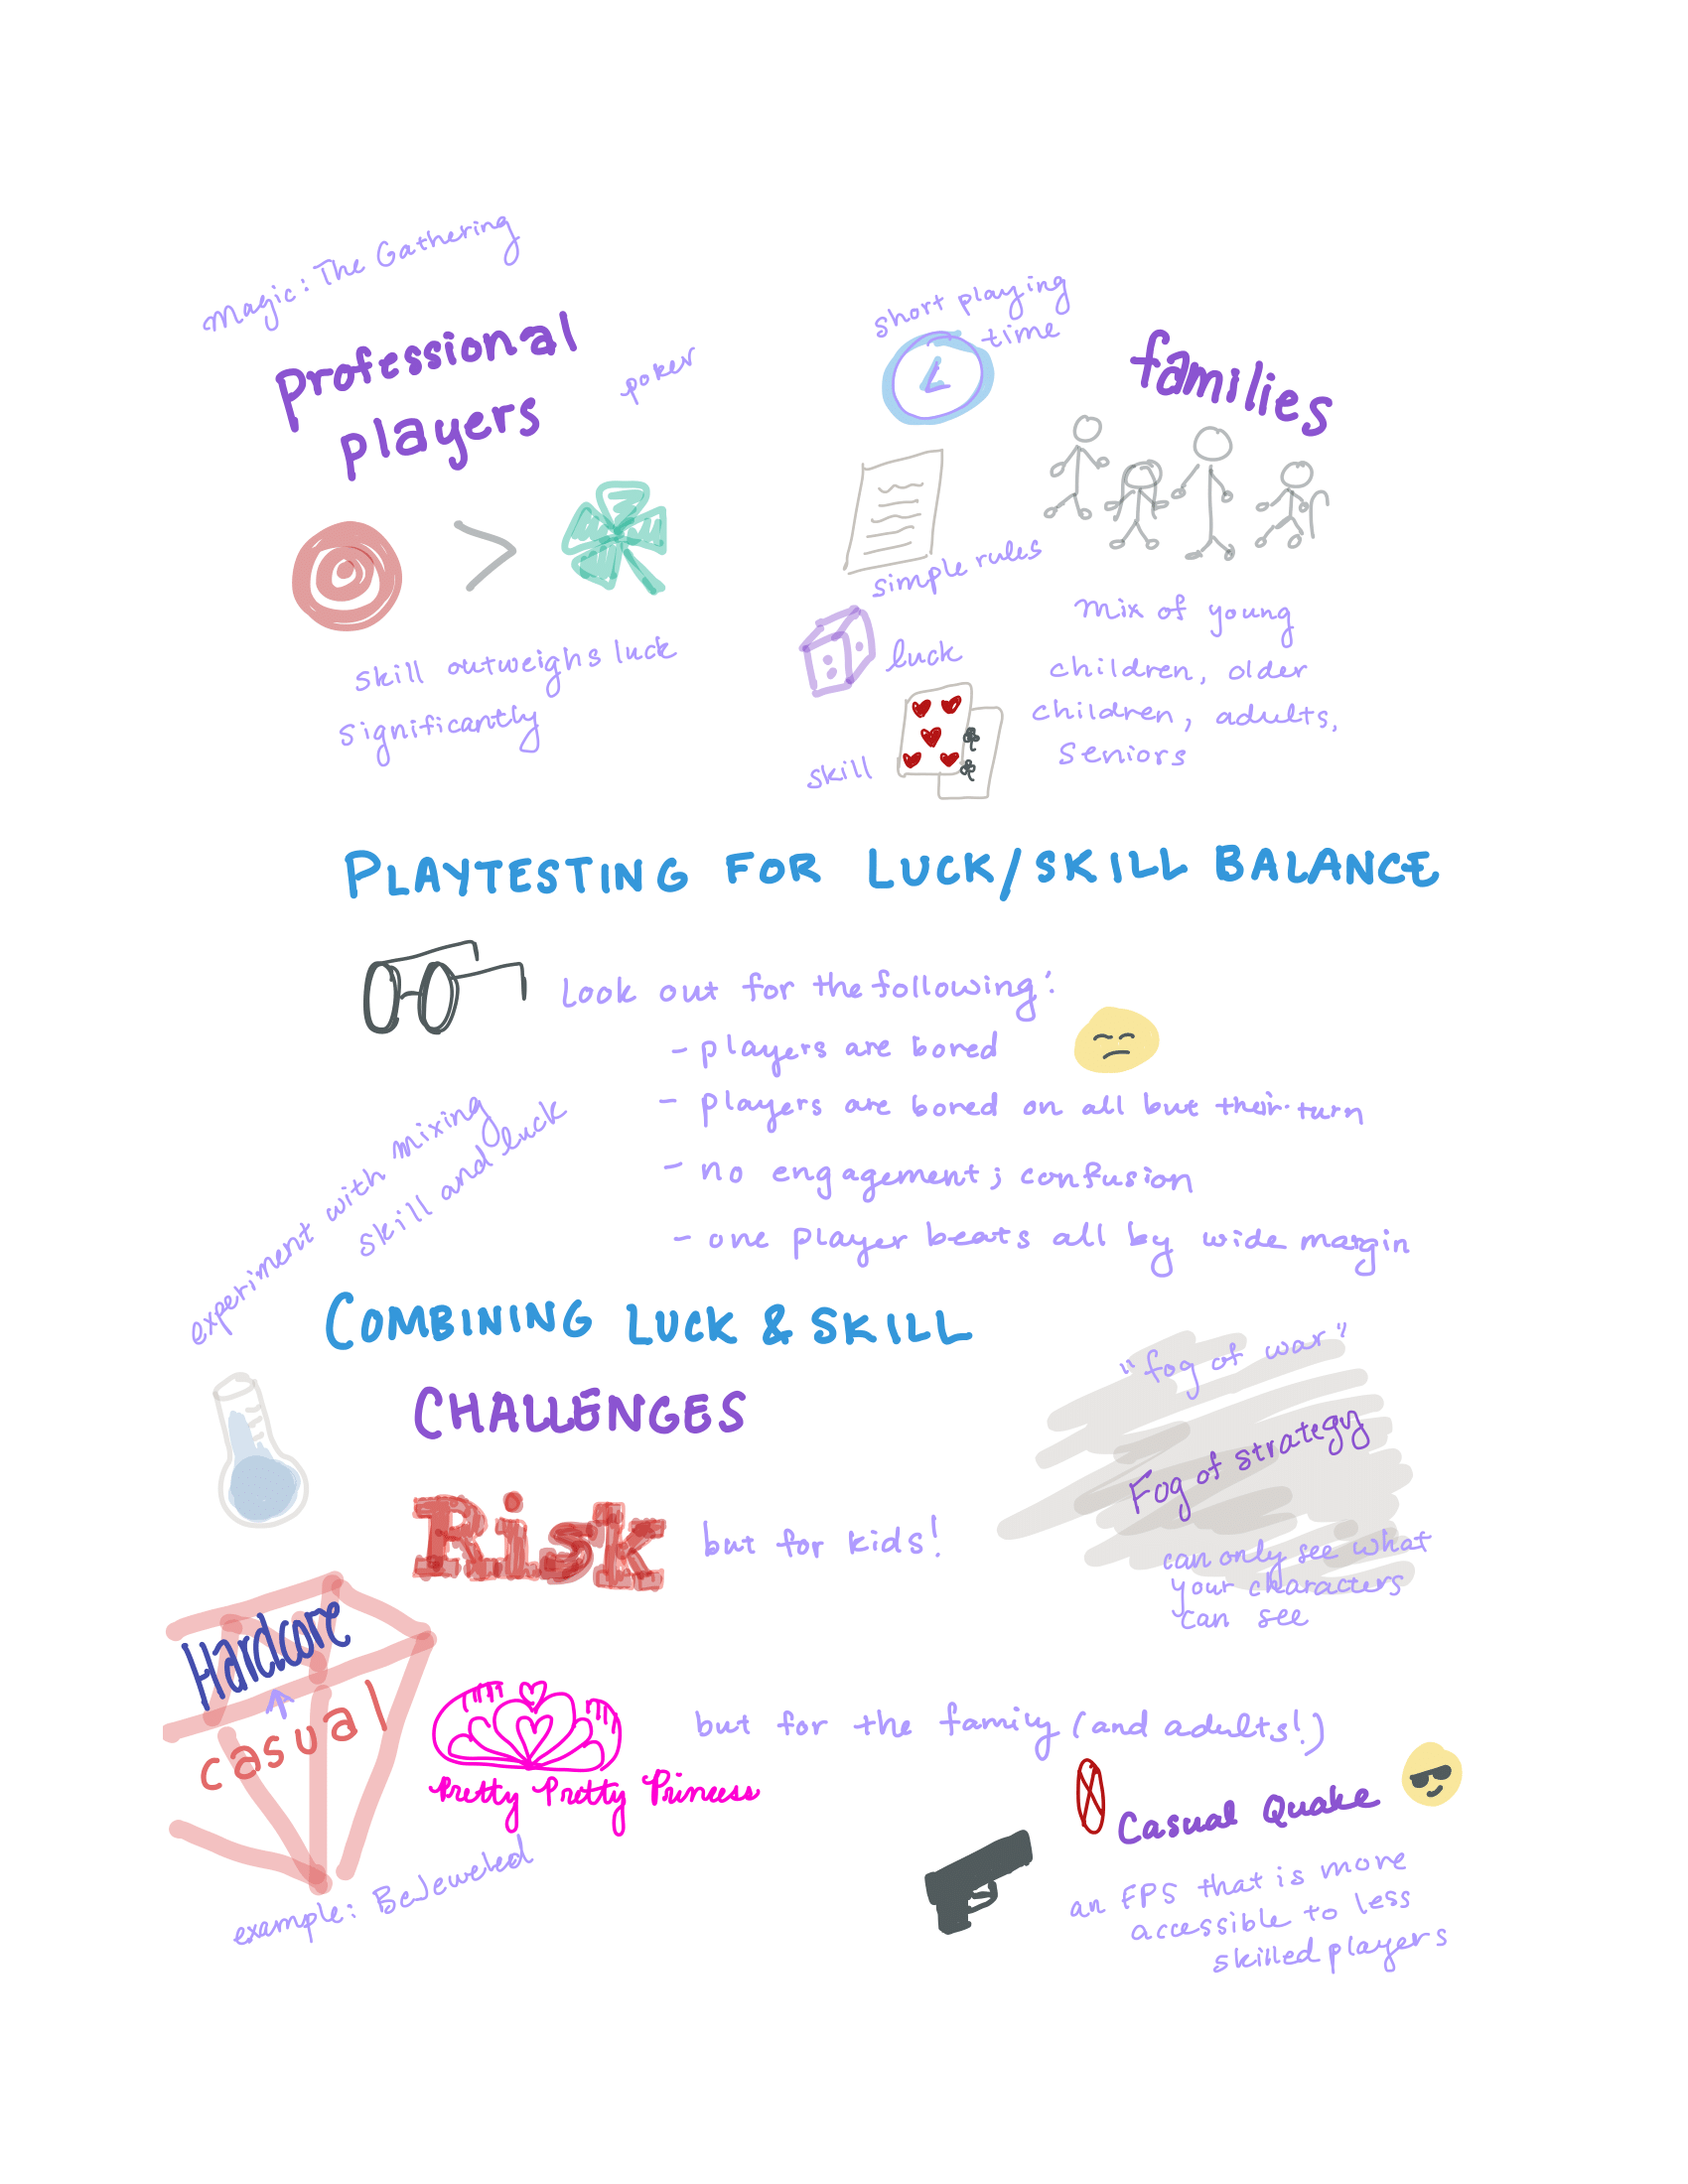 Magic: The Gathering
professional
players
poker
skill outweighs luck
significantly
short playing
time
simple rules
luck
skill
families
mix of young
children, older
children, adults,
seniors
PLAYTESTING FOR LUCK/SKILL BALANCE
Look out for the following:
- players are bored
- players are bored on all but their turn
- no engagement; confusion
- one player beats all by wide margin
experiment with mixing
skill and luck
COMBINING LUCK & SKILL
CHALLENGES
Risk but for kids!
"fog of war"
Fog of strategy
can only see what
your characters
can see
Hardcore
casual
example: BeJeweled
Pretty Pretty Princess
but for the family (and adults!)
Casual Quake
an FPS that is more
accessible to less
skilled players